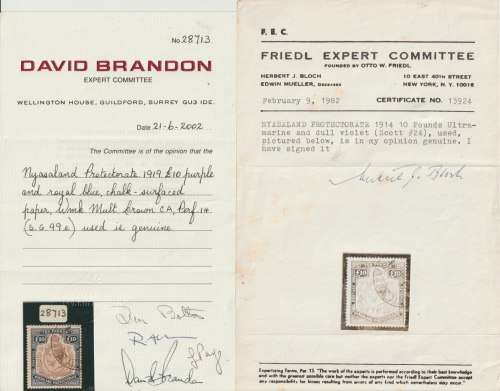 No. 28713
DAVID BRANDON
EXPERT COMMITTEE
WELLINGTON HOUSE, GUILDFORD, SURREY GU3 IDE.
Date 21-6-2002
The Committee is of the opinion that the
Nyasaland Protectorate 1919 £10 purple
and royal blue, chalk-surfaced
paper, Wmk Mult Crown CA, Perf 14
(S.G. 99e) used is genuine
28713
David Brandon
F. E. C.
FRIEDL EXPERT COMMITTEE
FOUNDED BY OTTO W. FRIEDL
HERBERT J. BLOCH
EDWIN MUELLER, DECEASED
10 EAST 40TH STREET
NEW YORK, N.Y. 10016
February 9, 1982
CERTIFICATE NO. 13924
NYASALAND PROTECTORATE 1914 10 Pounds Ultra-
marine and dull violet (Scott #24), used,
pictured below, is in my opinion genuine. I
have signed it
Herbert J. Bloch
£10 £10
Expertizing forms, Par. 13 "The work of the experts is performed according to their best knowledge
and with the greatest possible care but neither the experts nor the Friedl Expert Committee accept
any responsibility for losses resulting from errors of any kind whatsoever which nevertheless may occur."